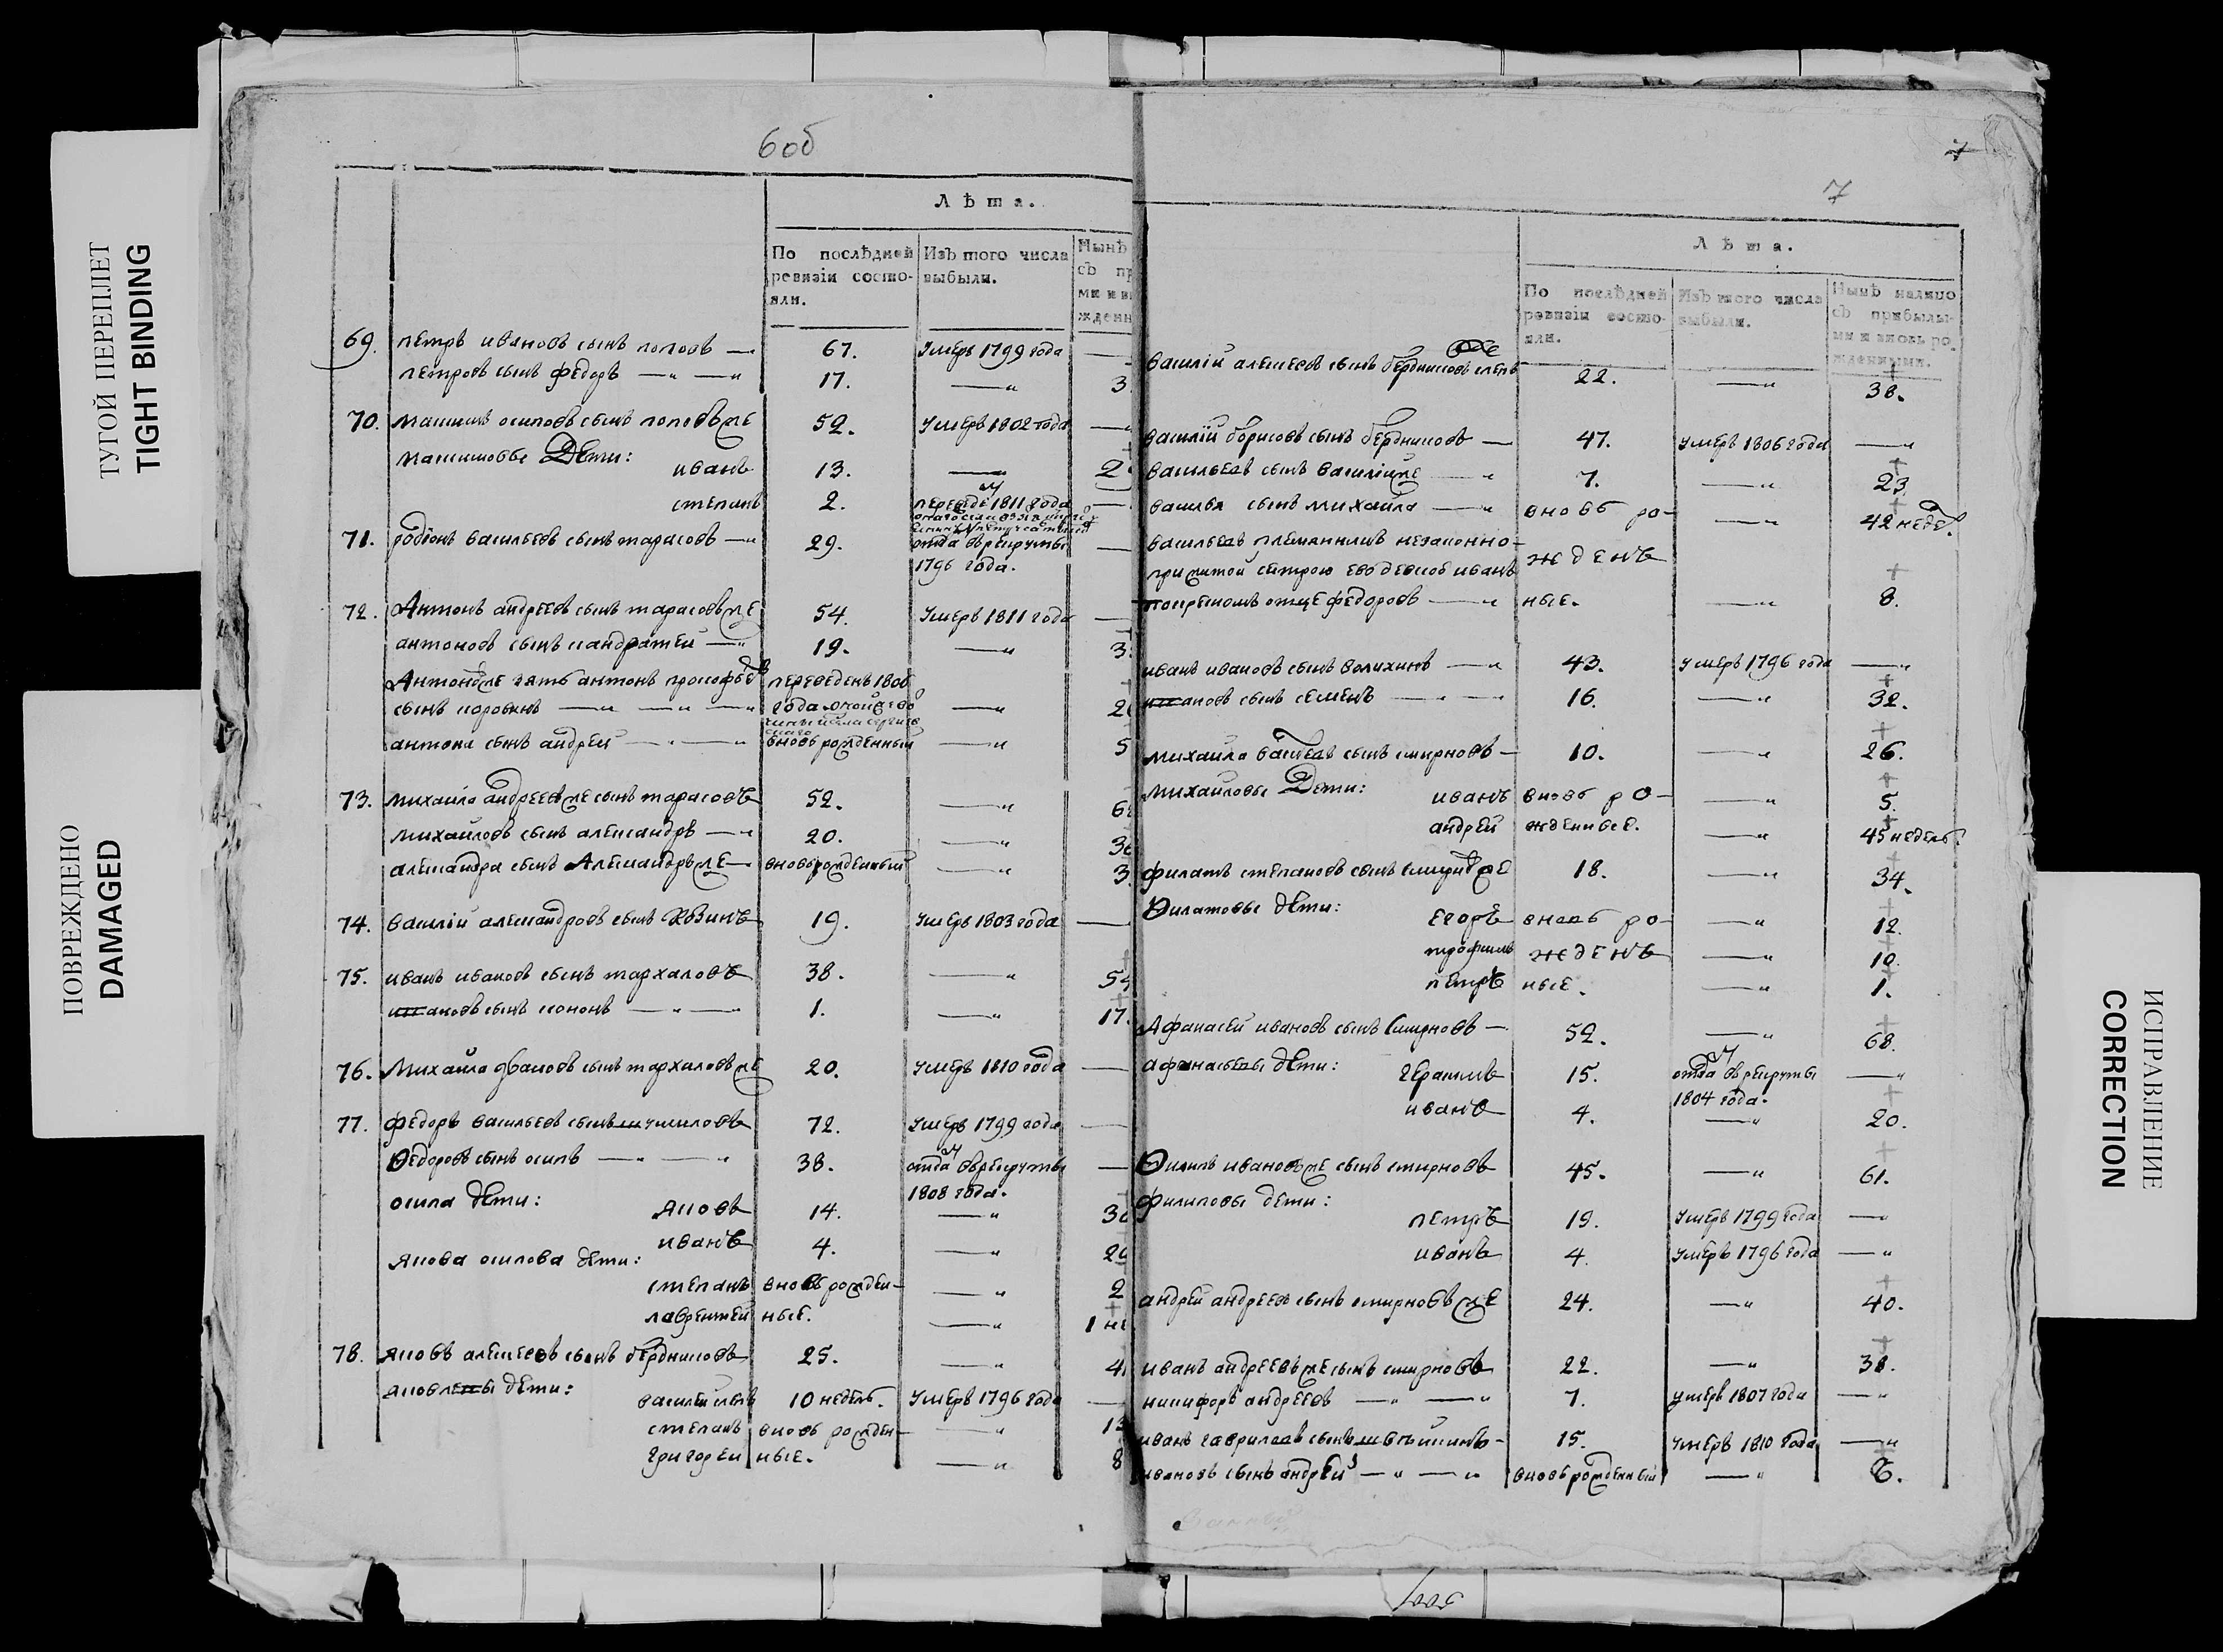 ТУГОЙ ПЕРЕПЛЕТ
TIGHT BINDING
ПОВРЕЖДЕНО
DAMAGED
6 об
Лѣта.
По послѣдней ревизіи состояли.
Изъ того числа выбыли.
Нынѣ
съ пр
ми и вн
жденн
69. петръ ивановъ сынъ поповъ — 67. умеръ 1799 года —
петровъ сынъ федоръ — " — " 17. — " 3
70. максимъ осиповъ сынъ поповъ же 52. умеръ 1802 года —
максимовы Дети:
иванъ 13. — 2
степанъ 2. переведе 1811 года —
71. родіонъ васильевъ сынъ тарасовъ — " 29. отда в рекруты —
1796 года.
72. Антонъ андреевъ сынъ тарасовъ же 54. умеръ 1811 года —
антоновъ сынъ кандратей — " 19. — " 3
Антонов же зять антонъ прокофьевъ переведенъ 1806
сынъ коровинъ — " — " — " года — " 2
антона сынъ андрей — " — " вновь рожденный — " 5
73. михаила андреевъ же сынъ тарасовъ 52. — " 6
михаиловъ сынъ александръ — " 20. — " 3
александра сынъ Александръ же — вновь рожденный — " 3
74. василій александровъ сынъ 19. умеръ 1803 года —
75. иванъ ивановъ сынъ тархаловъ 38. — " 54
ивановъ сынъ кононъ — " — " 1. — " 17.
76. Михаила ивановъ сынъ тархаловъ же 20. умеръ 1810 года —
77. федоръ васильевъ сынъ 72. умеръ 1799 года —
Ѳедоровъ сынъ осипъ — " — " 38. отда в рекруты —
1808 года.
осипа дети:
яковъ 14. — " 3
иванъ 4. — " 2
якова осипова дети:
степанъ вновь рожден- — " 2
лаврентей ные. — " 1 не
78. яковъ алексеевъ сынъ бердниковъ 25. — " 4
яковлевы дети:
василий 10 недель. умеръ 1796 года —
степанъ вновь рожден- — " 1
григорей ные. — " 8
7
7
Лѣта.
По послѣдней ревизіи состояли.
Изъ того числа выбыли.
Нынѣ налицо съ прибылыми и вновь рожденными.
василій алексеевъ сынъ бердниковъ 22. — " 38.
василій борисовъ сынъ бердниковъ — 47. умеръ 1806 года — "
васильевъ сынъ василій же — " 7. — " 23.
василья сынъ михайла — " вновь ро- — " 42 неде
васильевъ племянникъ незаконно-
прижитой сестрою ево девкой иванъ жденъ
по крестномъ отце федоровъ — " ные. — " 8.
иванъ ивановъ сынъ волихинъ — " 43. умеръ 1796 года — "
ивановъ сынъ семенъ — " — " 16. — " 32.
михайла сынъ смирновъ — 10. — " 26.
михайловы Дети:
иванъ вновь ро- — " 5.
андрей жденные. — " 45 недель.
филатъ степановъ сынъ смирновъ же 18. — " 34.
Ѳилатовы дети:
егоръ вновь ро- — " 12.
трофимъ жденъ — " 10.
петръ ные. — " 1.
Афанасей ивановъ сынъ смирновъ — 52. — " 68.
афонасьевы дети:
герасимъ 15. отда в рекруты — "
1804 года.
иванъ 4. — " 20.
Ѳилипъ ивановъ же сынъ смирновъ 45. — " 61.
филиповы дети:
петръ 19. умеръ 1799 года — "
иванъ 4. умеръ 1796 года — "
андрей андреевъ сынъ смирновъ же 24. — " 40.
иванъ андреевъ же сынъ смирновъ 22. — " 38.
никифоръ андреевъ — " — " 7. умеръ 1807 года — "
иванъ гавриловъ сынъ 15. умеръ 1810 года — "
ивановъ сынъ андрей — " — " вновь рожденный — " 6.
ИСПРАВЛЕНИЕ
CORRECTION